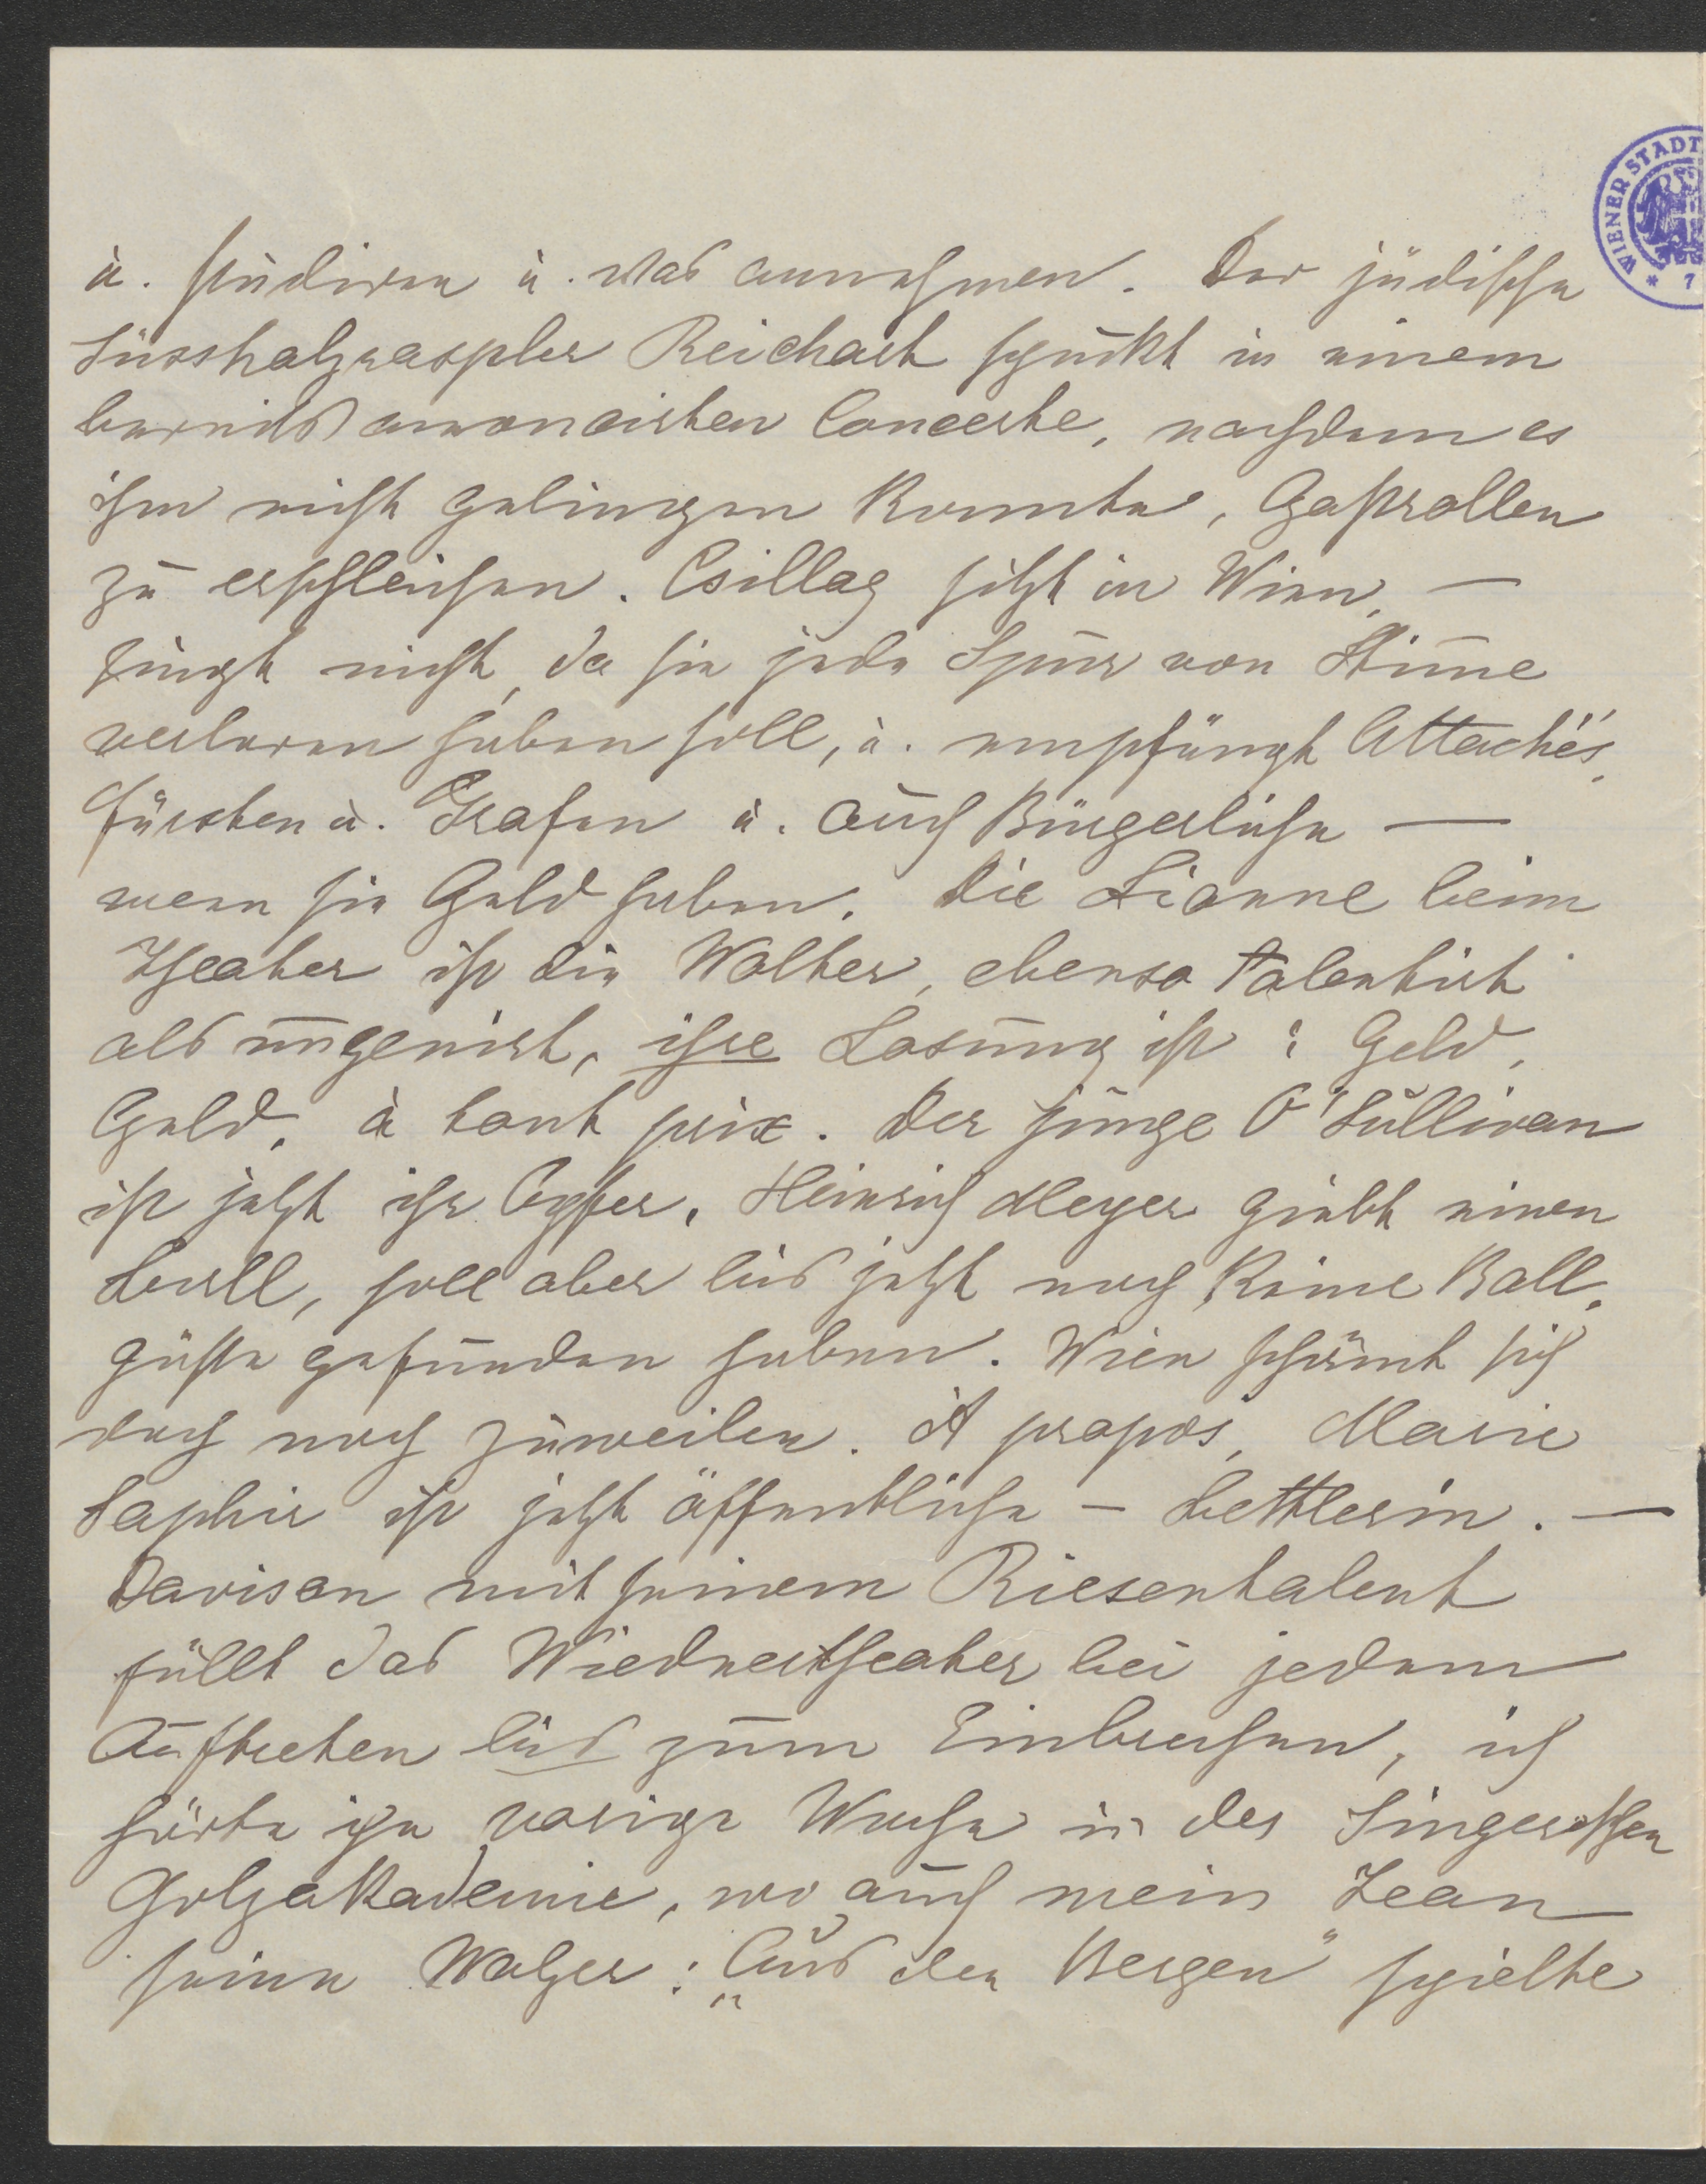 WIENER STADT
* 7
u. studiren u. was annehmen. Der jüdische
Süssholzraspler Reichart spukt in einem
bereits anoncirten Concerte, nachdem es
ihm nicht gelingen konnte, Gastrollen
zu erschleichen. Csillag sitzt in Wien, —
singt nicht, da sie jede Spur von Stim̄e
verloren haben soll, u. empfängt Attachés,
Fürsten u. Grafen u. auch Bürgerliche —
wenn sie Geld haben. Die Lionne beim
Theater ist die Wolter, ebenso talentirt
als ungenirt, ihre Losung ist: Geld,
Geld, à tout prix. Der junge O'Sullivan
ist jetzt ihr Opfer. Heinrich Meyer giebt einen
Ball, soll aber bis jetzt noch keine Ball-
gäste gefunden haben. Wien schämt sich
doch noch zuweilen. A propos, Marie
Saphir ist jetzt öffentliche — Bettlerin. —
Davison mit seinem Riesentalent
füllt das Wiednertheater bei jedem
Auftreten bis zum Einbrechen, ich
hörte ihn vorige Woche in der Singerschen
Holzakademie, wo auch mein Jean
seine Walzer: „Aus den Bergen" spielte